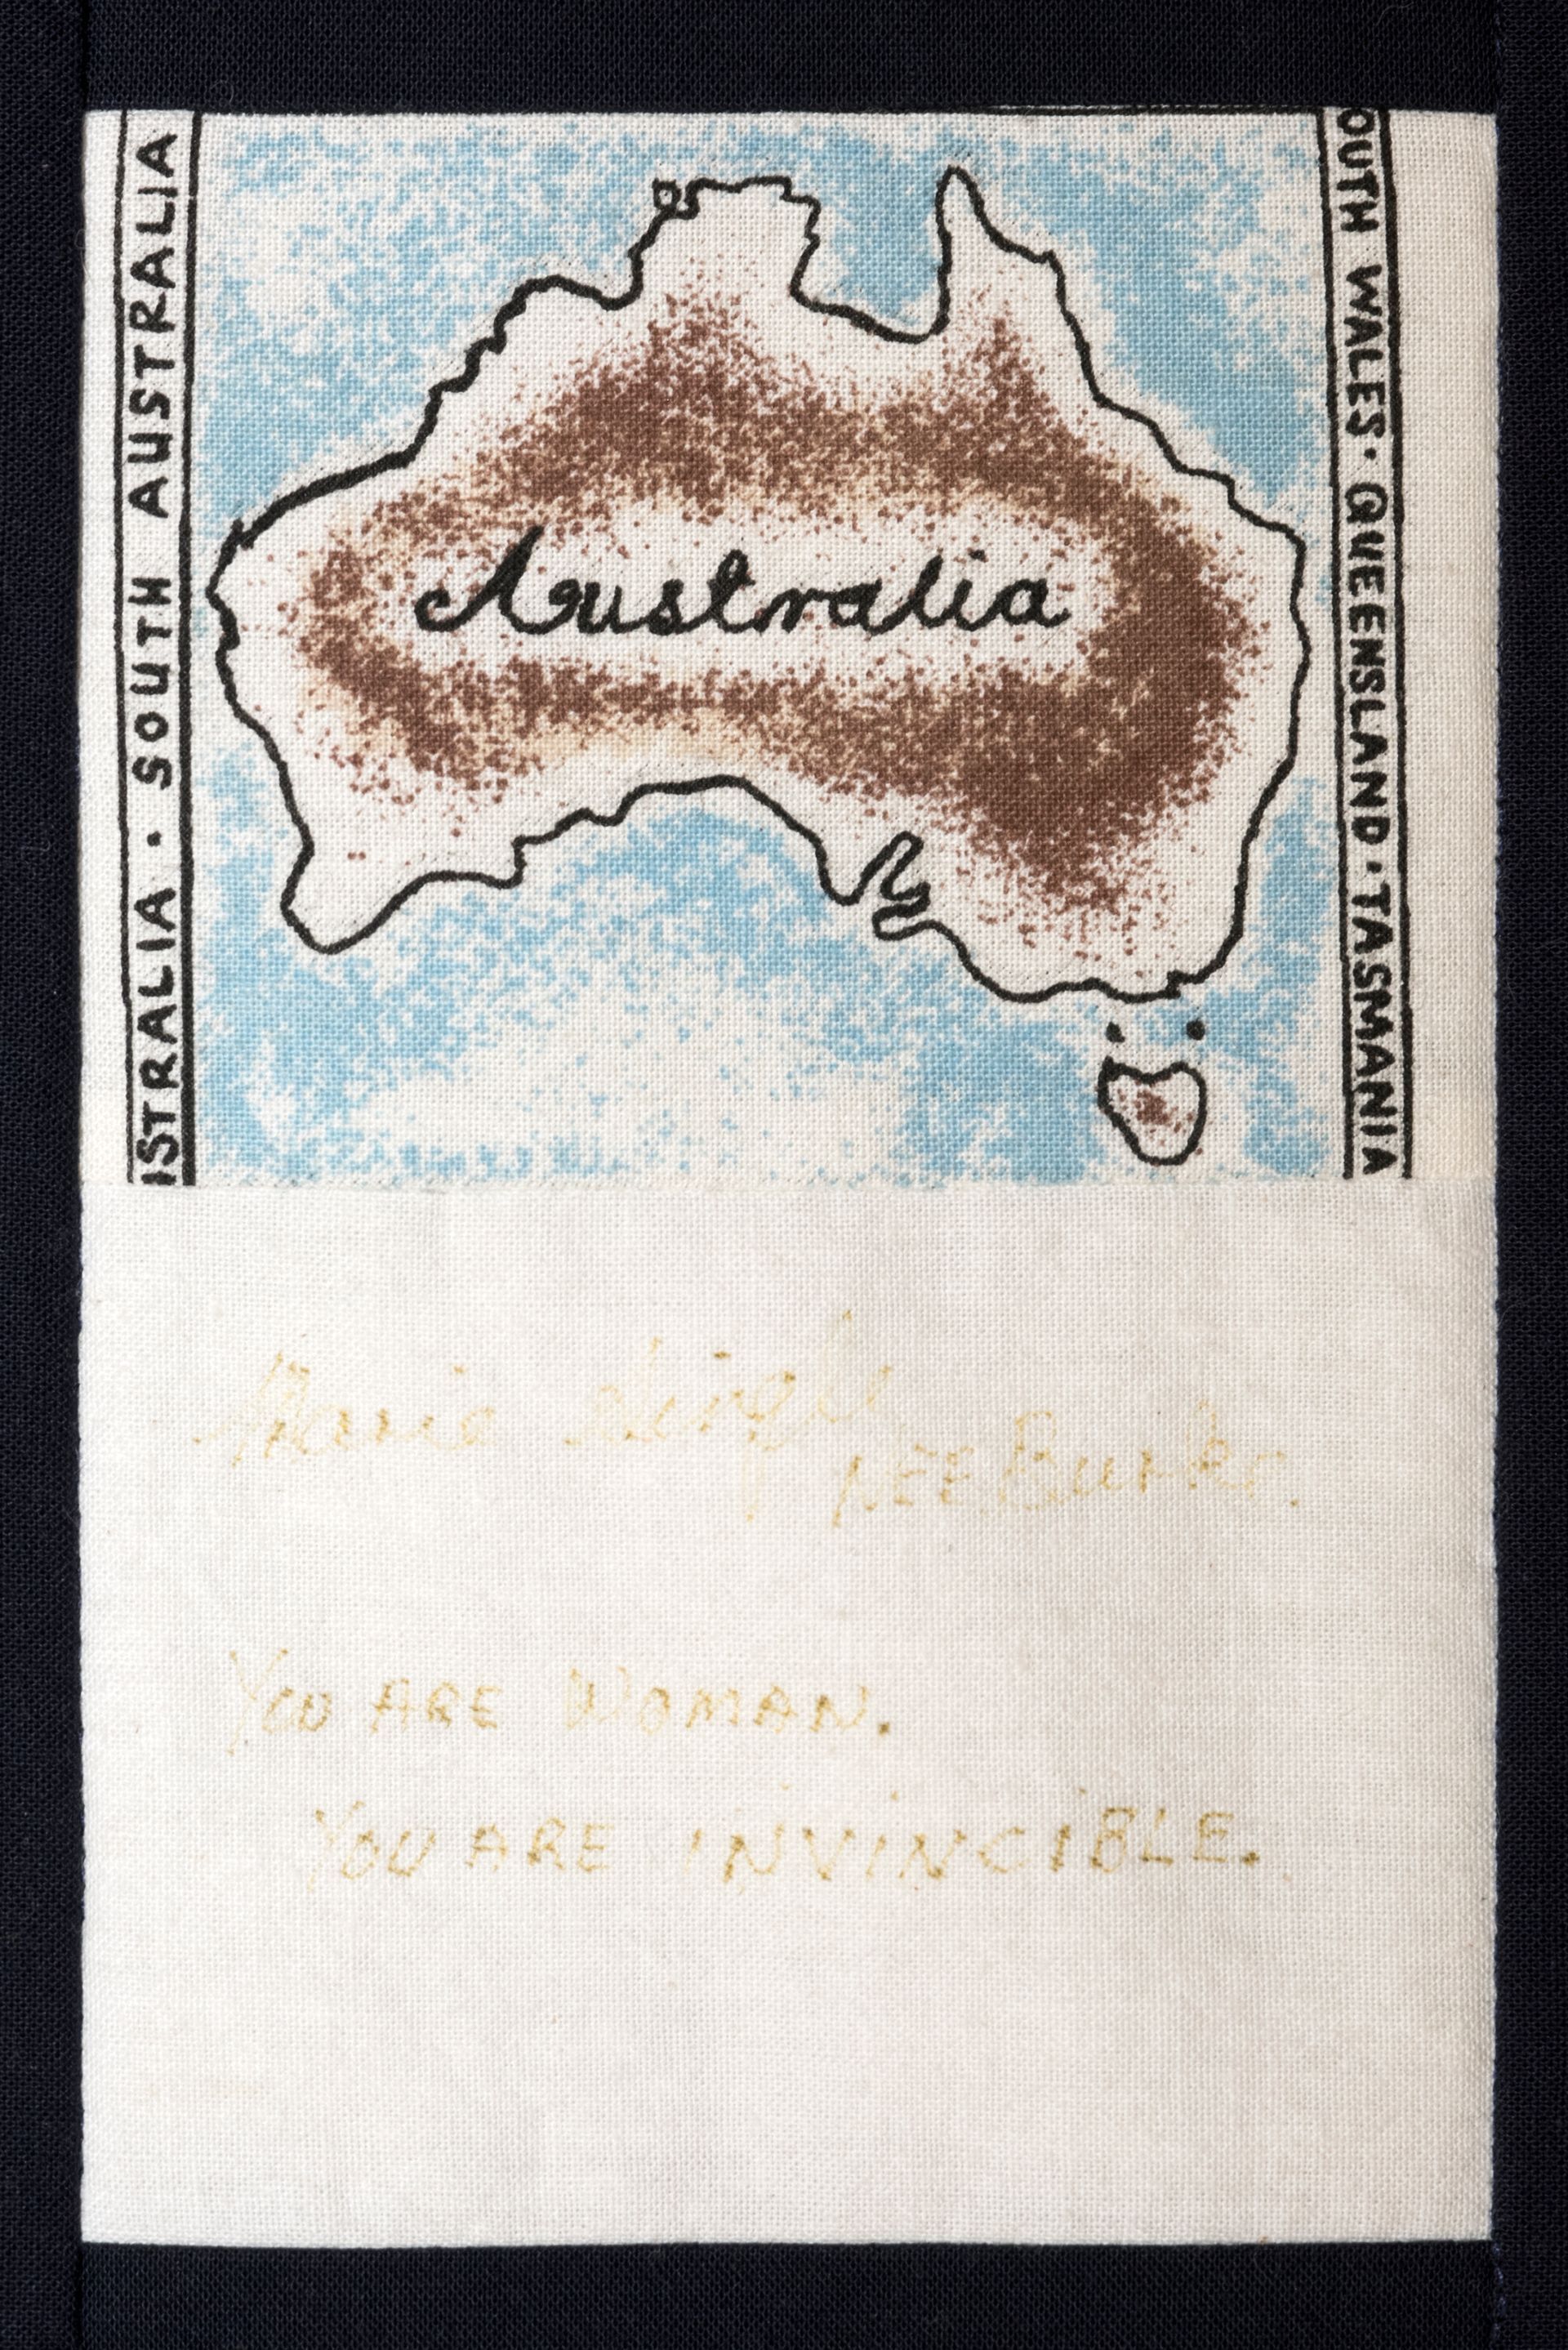 ISTRALIA · SOUTH AUSTRALIA
OUTH WALES · QUEENSLAND · TASMANIA
Australia
Marie
NEE Burke.
YOU ARE WOMAN.
YOU ARE INVINCIBLE.